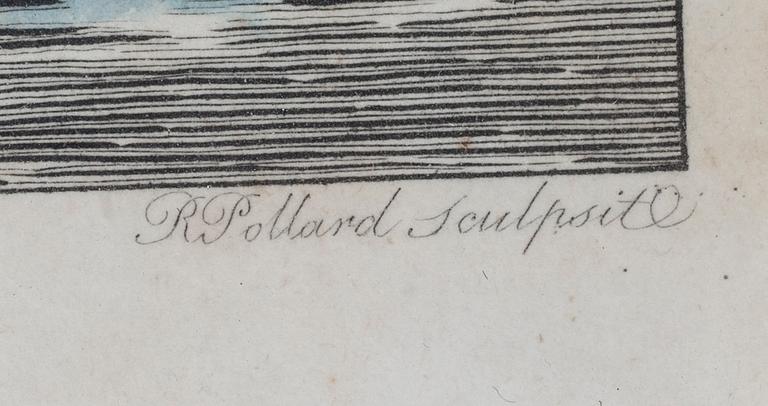 R Pollard Sculpsit